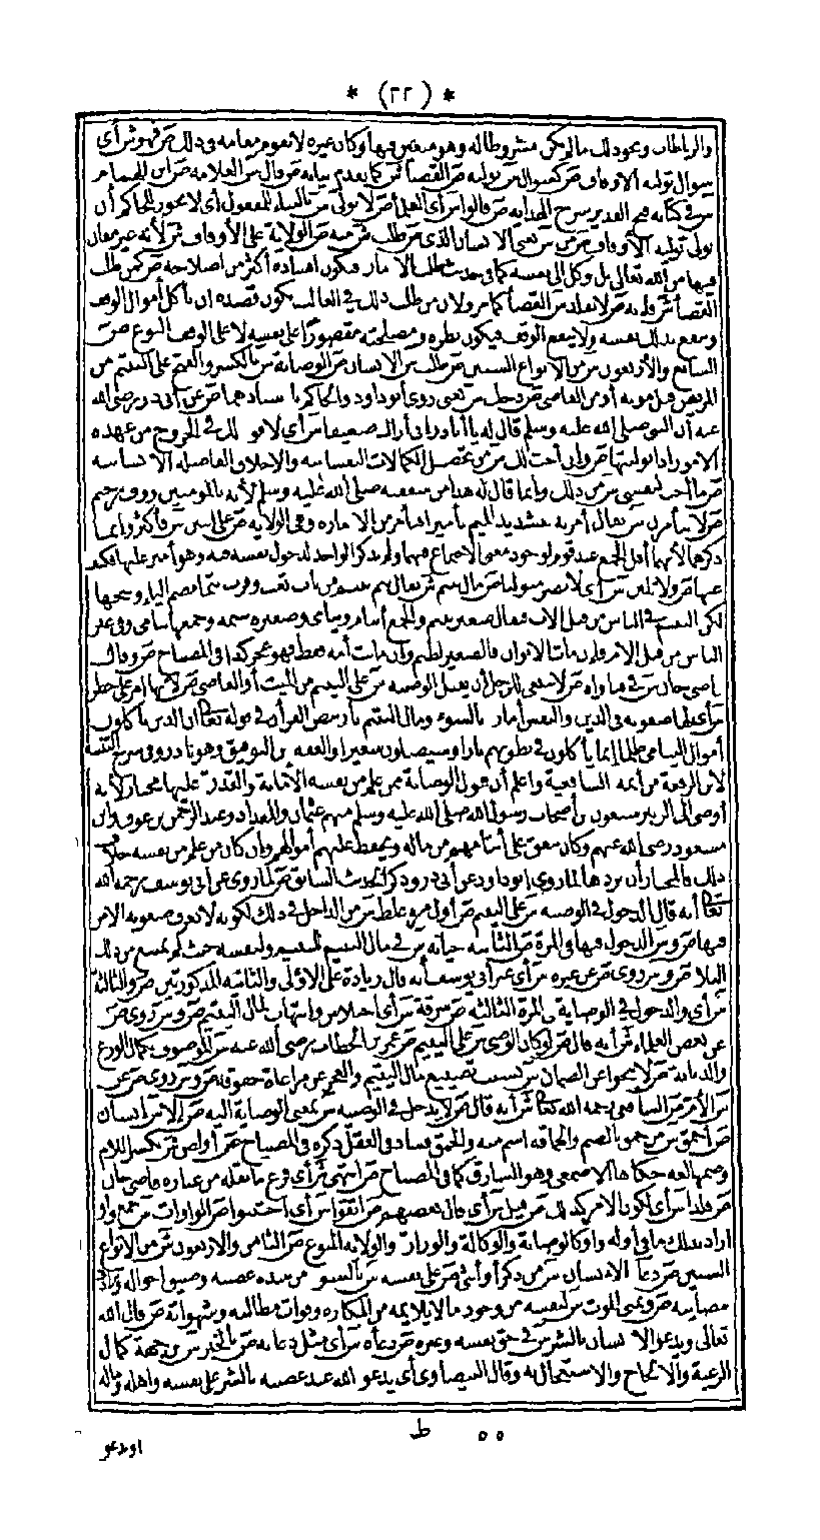 * (٢٢) *
والرباطات ونحو ذلك ما لم يكن مشروطا له وهو متعين فيها وكان غيره لا يقوم مقامه في ذلك ص فهو ش أي
سؤال تولية الأوقاف ص كسؤال ش تولية ص القضاء ش كما تقدم بيانه ص قال ش العلامة ص ابن الهمام
ش في كتابه فتح القدير شرح الهداية ص قالوا ش أي العلماء ص لا يولى ش بالبناء للمفعول أي لا يجوز للحاكم أن
يولي تولية الأوقاف ص من ش يعني الانسان الذي ص طلب ش منه ص الولاية على الأوقاف ش لأنه غير معان
فيها من الله تعالى بل وكل الى نفسه كما في حديث طلب الامارة فيكون افساده أكثر من اصلاحه ص كمن طلب
القضاء ش فإنه ص لا يقلد ش القضاء كما مر ولان من طلب ذلك في الغالب يكون قصده ان يأكل أموال الوقف
وينفع بذلك نفسه ولا ينفع الوقف فيكون نظره ومصلحته مقصورا على نفسه لا على الوقف النوع ص
السابع والأربعون ش من الانواع الستين ص طلب ش الانسان ص الوصاية ش بالكسر والفتح على اليتيم من
المريض قبل موته أو من القاضي ص دخل ش يعني روى أبو داود والحاكم باسنادهما ص عن أبي ذر رضي الله
عنه أن النبي صلى الله عليه وسلم قال له يا أبا ذر اني أراك ضعيفا ش أي لا قوة لك في الخروج من عهدة
الامور اذا توليتها ص واني أحب لك ش من تحصيل الكمالات النفسانية والاخلاق الفاضلة الانسانية
ص ما أحب لنفسي ش من ذلك وانما قال له هذا من شفقته صلى الله عليه وسلم لأنه بالمؤمنين رؤوف رحيم
ص لا تأمرن ش يقال أمر به بتشديد الميم تأميرا فتأمر من الامارة وهي الولاية ص على اثنين ش فأكثر وانما
ذكرهما لأنهما أقل الجمع عند قوم لوجود معنى الاجتماع فيهما ولم يذكر الواحد لدخول نفسه فيه وهو أمير عليها فكيف
عنها ص ولا تلين ش أي لا تصر متوليا ص مال يتيم ش يقال يتم ييتم من باب تعب وقرب يتما بضم الياء وفتحها
لكن اليتم في الناس من قبل الاب فيقال صغير يتيم والجمع أيتام ويتامى وصغيرة يتيمة وجمعها يتامى وفي غير
الناس من قبل الام فان مات الابوان فالصغير لطيم وان ماتت أمه فقط فهو عجي كذا في المصباح ص وقال
قاضي خان ش في فتاواه ص لا ينبغي للرجل أن يقبل الوصية ش على اليتيم من الميت أو القاضي ص لانها امر على خطر
ش أي فيها صعوبة في الدين والنفس أمارة بالسوء ومال اليتيم نار بنص القرآن في قوله تعالى ان الذين يأكلون
أموال اليتامى ظلما انما يأكلون في بطونهم نارا وسيصلون سعيرا
لابن الرفعة من أئمة الشافعية واعلم أن قبول الوصاية ممن علم من نفسه الأمانة والقدرة عليها مختار لأنه
أوصى الى الزبير سبعون من أصحاب رسول الله صلى الله عليه وسلم منهم عثمان والمقداد وعبد الرحمن بن عوف وابن
مسعود رضي الله عنهم وكان ينفق على أيتامهم من ماله ويحفظ عليهم أموالهم وان كان من علم من نفسه خلاف
ذلك فالمختار أن يردها لما روى أبو داود عن أبي ذر وذكر الحديث السابق ص لما روى عن أبي يوسف رحمه الله
تعالى أنه قال الدخول في الوصية ش على اليتيم ص أول مرة غلط ش من الداخل في ذلك لكونه لا يعرف صعوبة الامر
فيها ص و ش الدخول فيها في المرة ص الثانية خيانة ش في مال اليتيم لليتيم ولنفسه حيث لم يمتنع من ذلك
البلاء ص و ش روى ص عن غيره ش أي غير أبي يوسف أنه قال زيادة على الأولى والثانية المذكورتين ص والثالثة
ش أي والدخول في الوصاية في المرة الثالثة ص سرقة ش أي اختلاس وانتهاب لمال اليتيم ص و ش روى ص
عن بعض العلماء ش أنه قال ص لو كان الوصي ش على اليتيم ص عمر بن الخطاب رضي الله عنه ش الموصوف بكمال الورع
والديانة ص لا ينجو عن الضمان ش بسبب تضييع مال اليتيم والعجز عن مراعاة حقوقه ص و ش روى ص عن
ش الامام ص الشافعي رحمه الله تعالى ش أنه قال ص لا يدخل في الوصية ش بمعنى الوصاية اليه ص إلا ش انسان
ص أحمق ش من حمق بالضم والحماقة اسم منه والحمق فساد في العقل ذكره في المصباح ص أو لص ش بكسر اللام
وضمها لغة حكاها الاصمعي وهو السارق كما في المصباح ص انتهى ش أي فرغ ما نقله من عبارة قاضي خان
ص فلذا ش أي لكون الامر كذلك ص قيل ش أي قال بعضهم ص اتقوا ش أي اجتنبوا ص الواوات ش جمع واو
أراد بذلك ما في أوله واو كالوصاية والوكالة والوزارة والولاية النوع ص الثامن والاربعون ش من الأنواع
الستين ص دعاء الانسان ش من ذكر أو أنثى ص على نفسه ش بالسوء من شدة غضبه وضيق أحواله
مصائبه ص وتمنى الموت ش لنفسه من وجود ما لا يلايمه من المكاره وفوات مطالبه وشهواته ص قال الله
تعالى ويدعو الانسان بالشر ش في حق نفسه وغيره ص دعاءه ش أي مثل دعائه ص بالخير ش من جهة كمال
الرغبة والالحاح والاستعجال به وقال البيضاوي أي يدعو الله عند غضبه بالشر على نفسه وأهله وماله
٥٥ ط
او يدعو